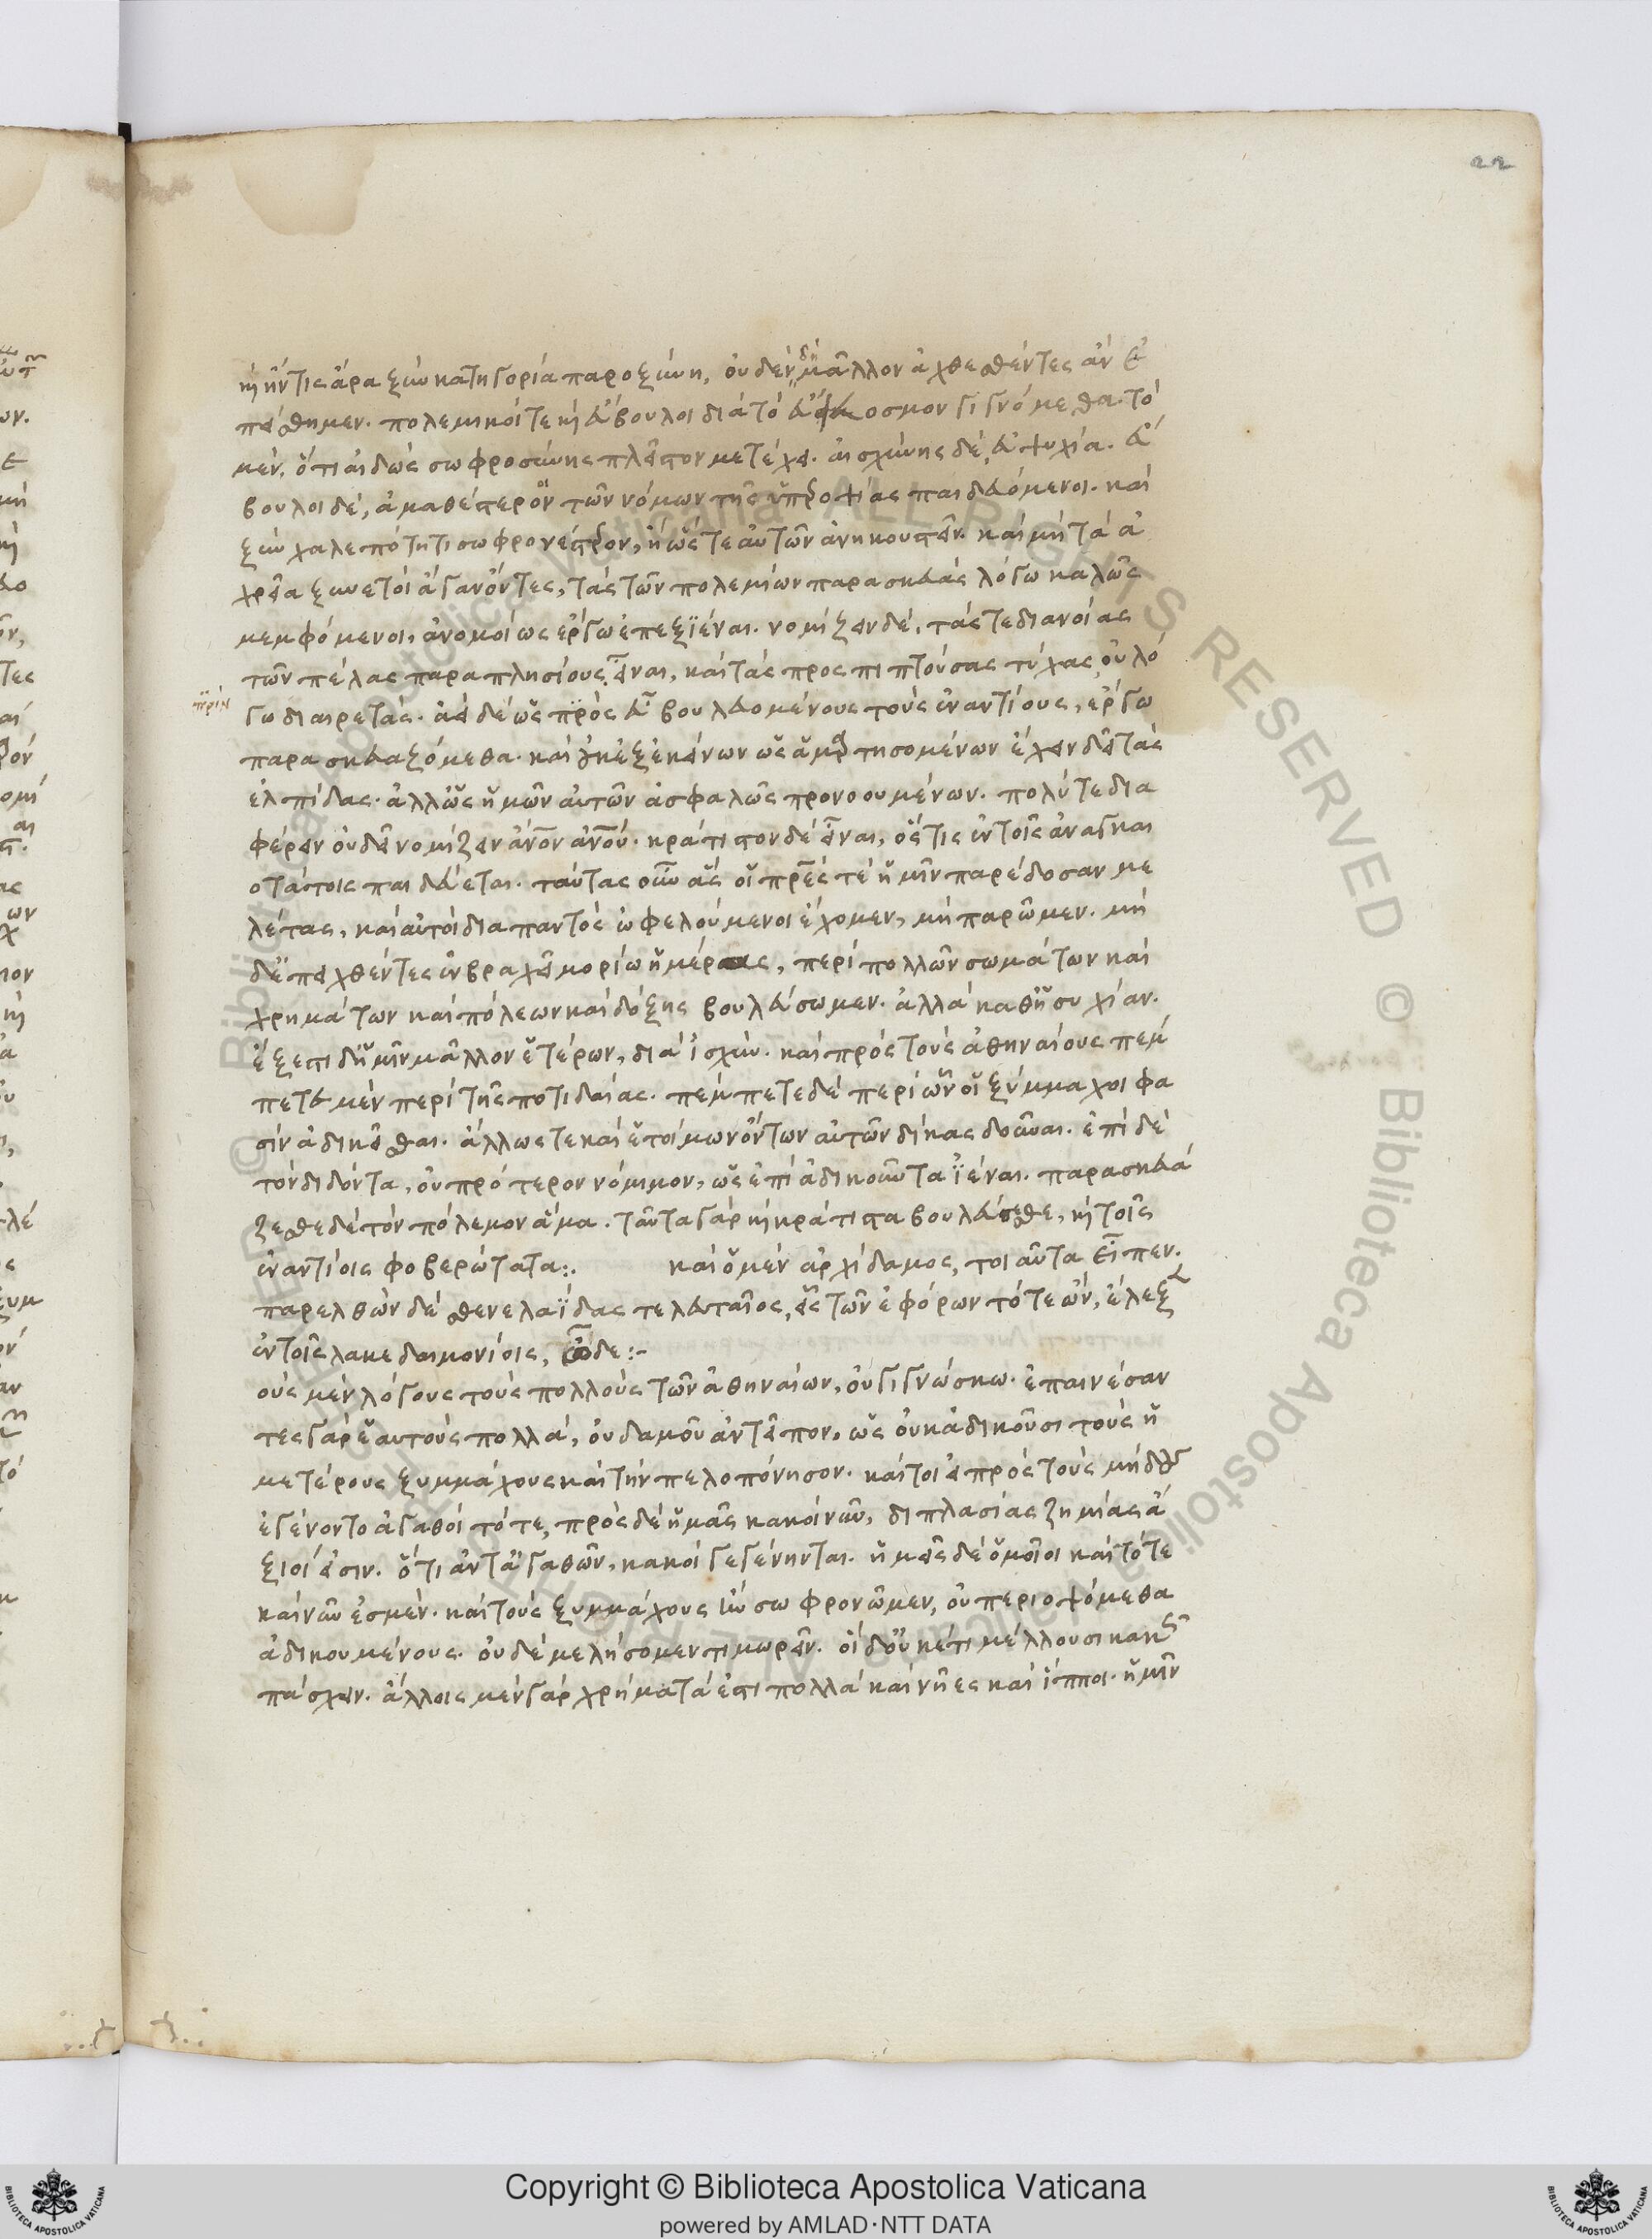 22
καὶ ἤν τις ἄρα ξὺν κατηγορία παροξύνη, οὐδὲν δὴ μᾶλλον ἀχθεσθέντες ἀν ε
πείσθημεν. πολεμικοί τε καὶ εὔβουλοι διὰ τὸ εὔκοσμον γιγνόμεθα. τὸ
μὲν, ὅτι αἰδὼς σωφροσύνης πλεῖστον μετέχει. αἰσχύνης δὲ, εὐψυχία. εὔ
βουλοι δὲ, ἀμαθέστερον τῶν νόμων τῆς ὑπεροψίας παιδευόμενοι. καὶ
ξὺν χαλεπότητι σωφρονέστερον, ἢ ὥστε αὐτῶν ἀνηκουστεῖν. καὶ μὴ τὰ ἀ
χρεῖα ξυνετοὶ ἄγαν ὄντες, τὰς τῶν πολεμίων παρασκευὰς λόγω καλῶς
μεμφόμενοι, ἀνομοίως ἔργω ἐπεξϊέναι. νομίζειν δὲ, τάς τε διανοίας
τῶν πέλας παραπλησίους εἶναι, καὶ τὰς προσπιπτούσας τύχας, οὐ λό
γω διαιρετάς. ἀεὶ δὲ ὡς πρὸς εὖ βουλευομένους τοὺς ἐναντίους, ἔργω
παρασκευαζόμεθα. καὶ οὐκ ἐξ ἐκείνων ὡς ἁμαρτησομένων ἔχειν δεῖ τὰς
ἐλπίδας. ἀλλ' ὡς ἡμῶν αὐτῶν ἀσφαλῶς προνοουμένων. πολύ τε δια
φέρειν οὐ δεῖ νομίζειν ἄνον ἀνου. κράτιστον δὲ εἶναι, ὅστις ἐν τοῖς ἀναγκαι
οτάτοις παιδεύεται. ταύτας οὖν ἃς οἱ πρες τε ἡμῖν παρέδοσαν με
λέτας, καὶ αὐτοὶ διαπαντὸς ὠφελούμενοι ἔχομεν, μὴ παρῶμεν. μὴ
δὲ ἐπειχθέντες ἐν βραχεῖ μορίω ἡμέρας, περὶ πολλῶν σωμάτων καὶ
χρημάτων καὶ πόλεων καὶ δόξης βουλεύσωμεν. ἀλλὰ καθ' ἡσυχίαν.
ἔξεστι δ' ἡμῖν μᾶλλον ἑτέρων, διὰ ἰσχύν. καὶ πρὸς τοὺς ἀθηναίους πέμ
πετε μὲν περὶ τῆς ποτιδαίας. πέμπετε δὲ περὶ ὧν οἱ ξύμμαχοι φα
σὶν ἀδικεῖσθαι. ἄλλως τε καὶ ἑτοίμων ὄντων αὐτῶν δίκας δοῦναι. ἐπὶ δὲ
τὸν διδόντα, οὐ πρότερον νόμιμον, ὡς ἐπὶ ἀδικοῦντα ἰέναι. παρασκευά
ζεσθε δὲ τὸν πόλεμον ἅμα. ταῦτα γὰρ καὶ κράτιστα βουλεύεσθε, καὶ τοῖς
ἐναντίοις φοβερώτατα:. καὶ ὁ μὲν ἀρχίδαμος, τοιαῦτα εἶπεν.
παρελθὼν δὲ σθενελαΐδας τελευταῖος, εἷς τῶν ἐφόρων τότε ὤν, ἔλεξεν
ἐν τοῖς λακεδαιμονίοις, ὧδε:-
οὺς μὲν λόγους τοὺς πολλοὺς τῶν ἀθηναίων, οὐ γιγνώσκω. ἐπαινέσαν
τες γὰρ ἑαυτοὺς πολλὰ, οὐδαμοῦ ἀντεῖπον, ὡς οὐκ ἀδικοῦσι τοὺς ἡ
μετέρους ξυμμάχους καὶ τὴν πελοπόνησον. καίτοι εἰ πρὸς τοὺς μήδους
ἐγένοντο ἀγαθοὶ τότε, πρὸς δὲ ἡμᾶς κακοὶ νῦν, διπλασίας ζημίας ἄ
ξιοί εἰσιν. ὅτι ἀντ' ἀγαθῶν, κακοὶ γεγένηνται. ἡμεῖς δὲ ὅμοιοι καὶ τότε
καὶ νῦν ἐσμέν. καὶ τοὺς ξυμμάχους ἢν σωφρονῶμεν, οὐ περιοψόμεθα
ἀδικουμένους. οὐδὲ μελήσομεν τιμωρεῖν. οἱ δ' οὐκέτι μέλλουσι κακῶς
πάσχειν. ἄλλοις μὲν γὰρ χρήματά ἐστι πολλὰ καὶ νῆες καὶ ἵπποι. ἡμῖν
© Biblioteca Apostolica Vaticana ALL RIGHTS RESERVED © Biblioteca Apostolica Vaticana ALL RIGHTS RESERVED
Copyright © Biblioteca Apostolica Vaticana
powered by AMLAD·NTT DATA
BIBLIOTECA APOSTOLICA VATICANA
BIBLIOTECA APOSTOLICA VATICANA